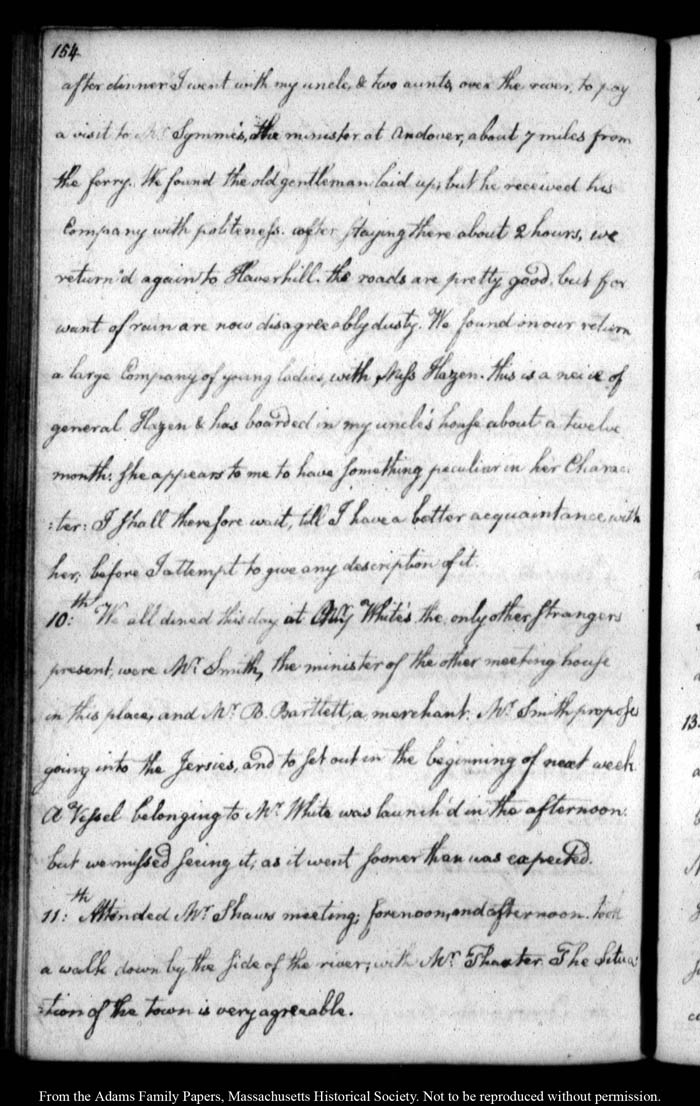 154
after dinner I went with my uncle, & two aunts, over the river, to pay
a visit to Mr. Symmes, the minister at Andover, about 7 miles from
the ferry. We found the old gentleman laid up, but he received his
Company with politeness. after staying there about 2 hours, we
return'd again to Haverhill. the roads are pretty good, but for
want of rain are now disagreeably dusty. We found on our return
a large Company of young ladies, with Miss Hazen. this is a neice of
general Hazen & has boarded in my uncle's house about a twelve
month. She appears to me to have something peculiar in her Charac
:ter: I shall therefore wait, till I have a better acquaintance with
her, before I attempt to give any description of it.
10:th We all dined this day at White's. the only other strangers
present, were Mr. Smith, the minister of the other meeting house
in this place, and Mr. B. Bartlett, a merchant. Mr. Smith proposes
going into the Jersies, and to set out in the beginning of next week.
A Vessel belonging to Mr. White was launch'd in the afternoon.
but we missed seeing it, as it went sooner than was expected.
11:th Attended Mr. Shaws meeting; forenoon, and afternoon. took
a walk down by the side of the river; with Mr. Thaxter. The Situa
:tion of the town is very agreeable.
13
From the Adams Family Papers, Massachusetts Historical Society. Not to be reproduced without permission.